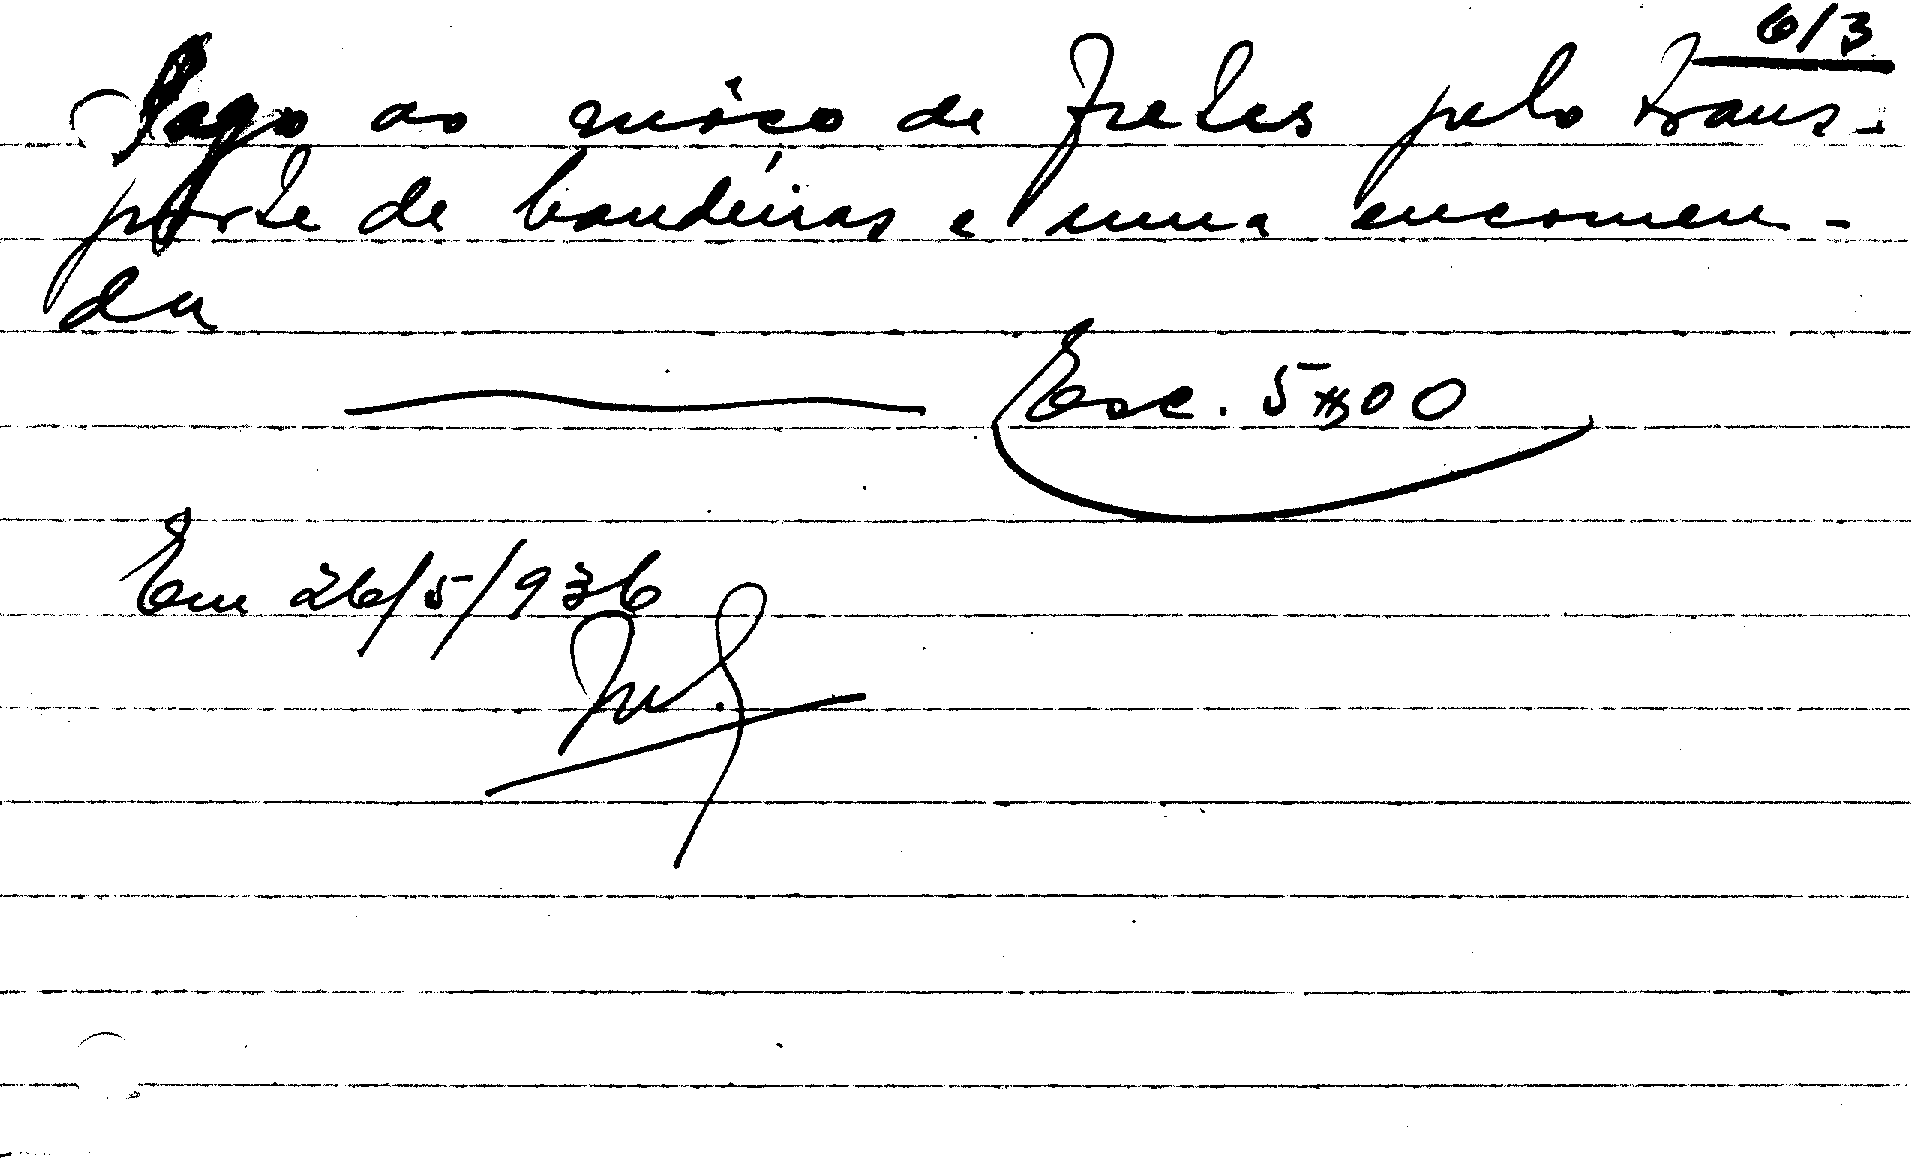 6/3
Pago ao môço de fretes pelo trans-
porte de bandeiras e uma encomen-
da
Esc. 5$00
Em 26/5/936